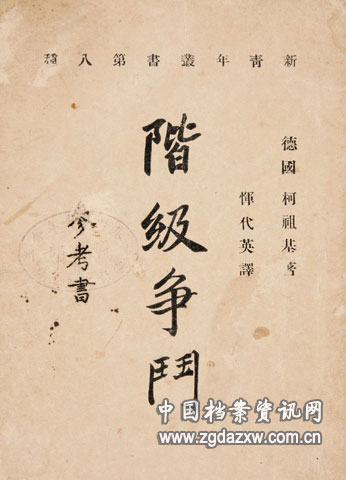 新青年叢書第八種
德國 柯祖基著
惲代英譯
階級争鬥
參考書
中国档案资讯网
www.zgdazxw.com.cn